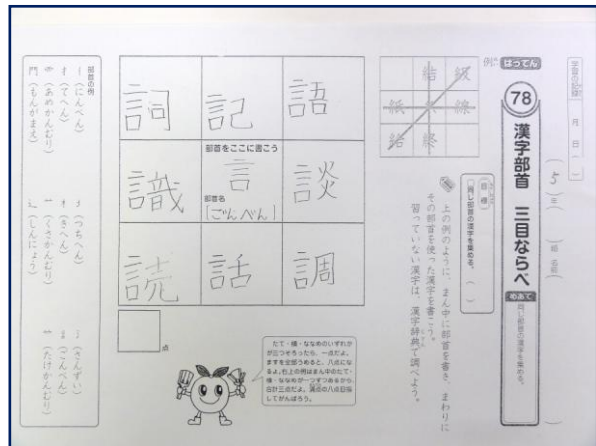 学習の記録 月 日( )
(5)年 組 名前
78 漢字部首 三目ならべ
めあて 同じ部首の漢字を集める。
はってん
例
級 結
線 糸 紙
終 給
目標
同じ部首の漢字を集める。( )
上の例のように、まん中に部首を書き、まわりに
その部首を使った漢字を書こう。
習っていない漢字は、漢字辞典で調べよう。
語 記 詞
談 部首をここに書こう 言 部首名 [ごんべん] 識
調 話 読
点
たて・横・ななめのいずれか
が三つそろったら、一点だよ。
ますを全部うめると、八点にな
るよ。右上の例はまん中のたて・
横・ななめが一つずつあるから、
合計三点だよ。満点の八点目指し
てがんばろう。
部首の例
イ(にんべん)
扌(てへん)
(あめかんむり)
門(もんがまえ)
(つちへん)
(きへん)
(くさかんむり)
(しんにょう)
氵(さんずい)
(ごんべん)
(たけかんむり)